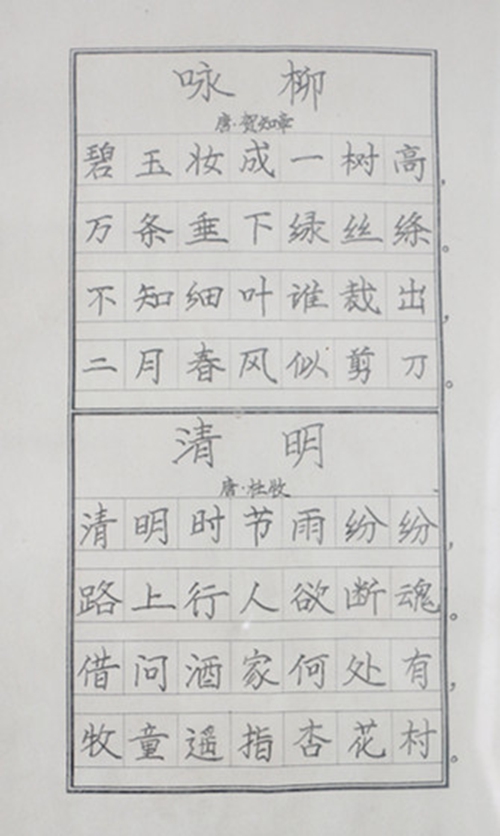 咏柳
唐·贺知章
碧玉妆成一树高，
万条垂下绿丝绦。
不知细叶谁裁出，
二月春风似剪刀。
清明
唐·杜牧
清明时节雨纷纷，
路上行人欲断魂。
借问酒家何处有，
牧童遥指杏花村。